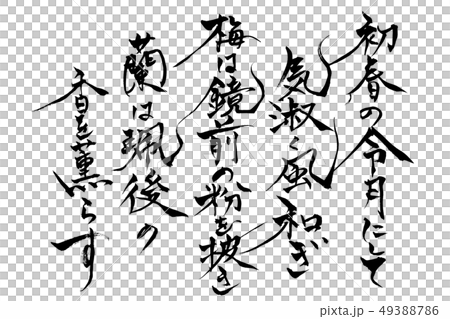 初春の令月にして
気淑く風和ぎ
梅は鏡前の粉を披き
蘭は珮後の
香を薫らす
49388786